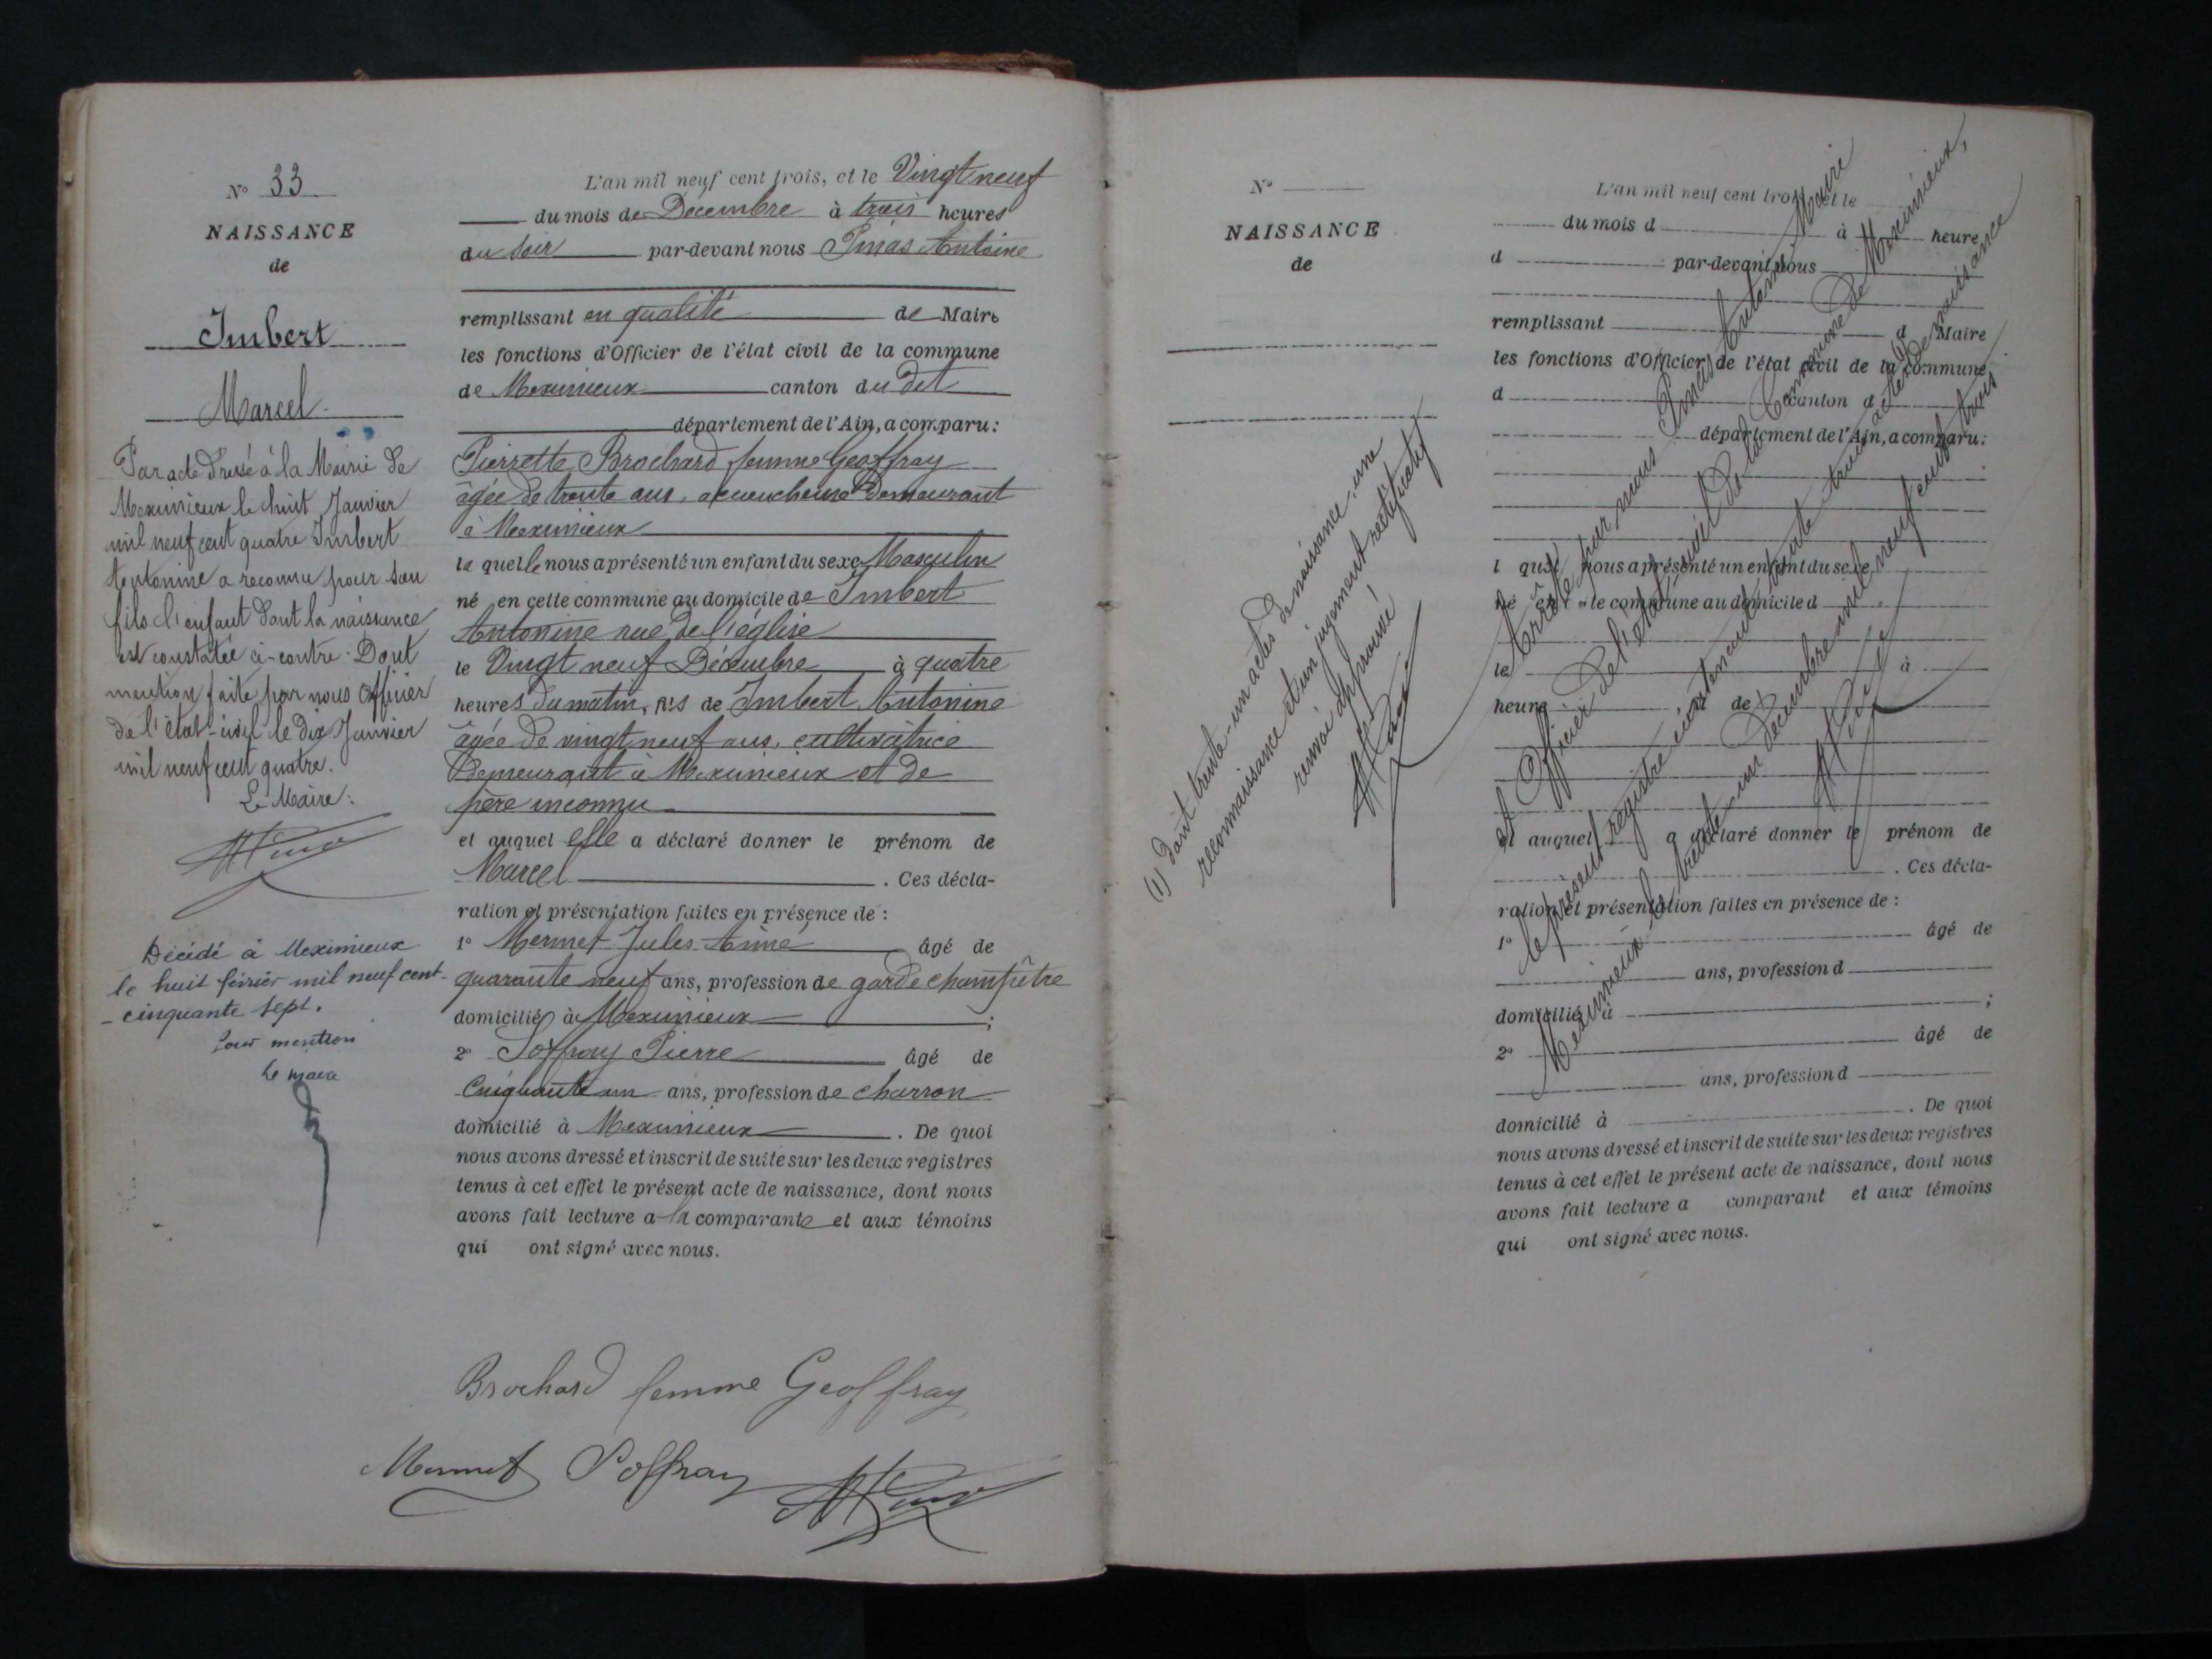 N° 33
NAISSANCE
de
Imbert
Marcel
Par acte dressé à la Mairie de
Meximieux le huit Janvier
mil neuf cent quatre Imbert
Antonine a reconnu pour son
fils l'enfant dont la naissance
est constatée ci-contre. Dont
mention faite par nous Officier
de l'état-civil le dix Janvier
mil neuf cent quatre.
Le Maire:
Décédé à Meximieux
le huit février mil neuf cent-
-cinquante sept.
Pour mention
Le maire
L'an mil neuf cent trois, et le Vingt neuf
du mois de Décembre à trois heures
du soir par-devant nous Pinas Antoine
remplissant en qualité de Maire
les fonctions d'Officier de l'état civil de la commune
de Meximieux canton du dit
département de l'Ain, a comparu:
Pierrette Brochard femme Geoffray
âgée de trente ans, accoucheuse demeurant
à Meximieux
la quelle nous a présenté un enfant du sexe Masculin
né en cette commune au domicile de Imbert
Antonine rue de l'église
le Vingt neuf Décembre à quatre
heures du matin, fils de Imbert Antonine
âgée de vingt neuf ans, cultivatrice
demeurant à Meximieux et de
père inconnu
et auquel elle a déclaré donner le prénom de
Marcel . Ces décla-
ration et présentation faites en présence de :
1° Mermet Jules Aimé âgé de
quarante neuf ans, profession de garde champêtre
domicilié à Meximieux ;
2° Soffray Pierre âgé de
Cinquante un ans, profession de charron
domicilié à Meximieux . De quoi
nous avons dressé et inscrit de suite sur les deux registres
tenus à cet effet le présent acte de naissance, dont nous
avons fait lecture a la comparante et aux témoins
qui ont signé avec nous.
Brochard femme Geoffray
Mermet Soffray
N°
NAISSANCE
de
(1) dont trente-un actes de naissance, une
reconnaissance et un jugement rectificatif
renvoi approuvé
L'an mil neuf cent trois, et le
du mois d à heure
d par-devant nous
remplissant d Maire
les fonctions d'Officier de l'état civil de la commune
d canton d
département de l'Ain, a comparu:
l quel nous a présenté un enfant du sexe
né en cette commune au domicile d
le à
heure de
et auquel a déclaré donner le prénom de
. Ces décla-
ration et présentation faites en présence de :
1° âgé de
ans, profession d
domicilié à ;
2° âgé de
ans, profession d
domicilié à . De quoi
nous avons dressé et inscrit de suite sur les deux registres
tenus à cet effet le présent acte de naissance, dont nous
avons fait lecture a comparant et aux témoins
qui ont signé avec nous.
Arrêté par nous Pinas Antoine Maire
et Officier de l'état civil de la Commune de Meximieux,
le présent registre contenant trente trois actes (1) de naissance
Meximieux le trente un décembre mil neuf cent trois